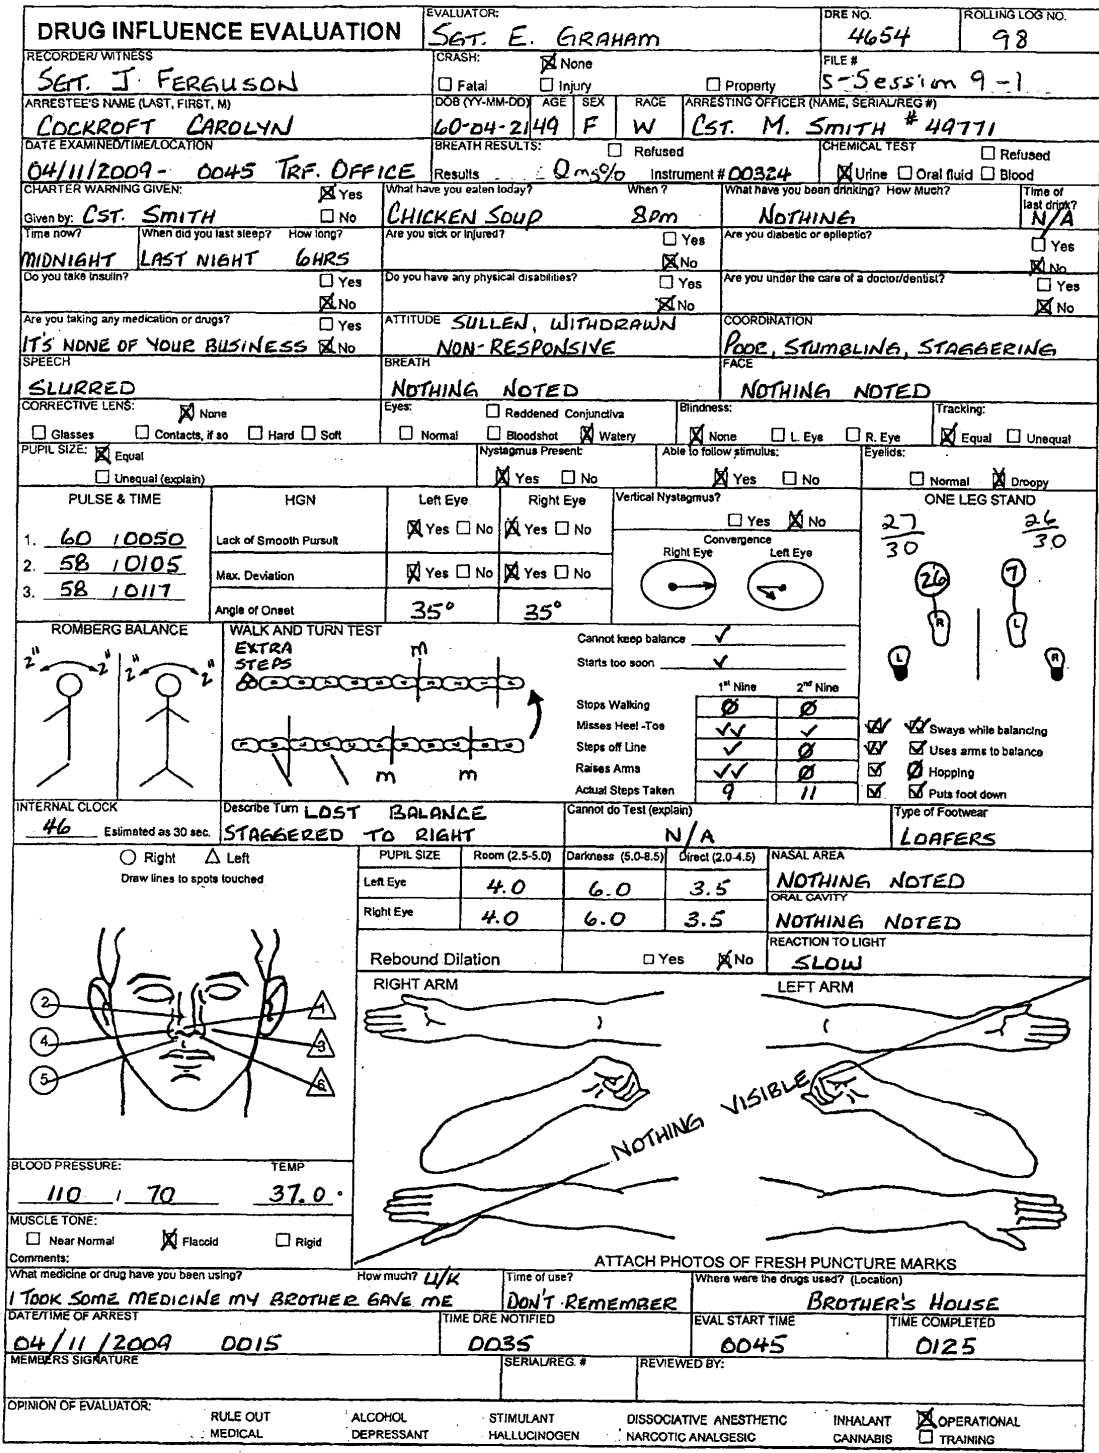 DRUG INFLUENCE EVALUATION
EVALUATOR:
SGT. E. GRAHAM
DRE NO.
4654
ROLLING LOG NO.
98
RECORDER/ WITNESS
SGT. J. FERGUSON
CRASH:
None
Fatal Injury Property
FILE #
S-Session 9-1
ARRESTEE'S NAME (LAST, FIRST, M)
COCKROFT CAROLYN
DOB (YY-MM-DD) AGE SEX RACE
60-04-21 49 F W
ARRESTING OFFICER (NAME, SERIAL/REG #)
CST. M. SMITH # 49771
DATE EXAMINED/TIME/LOCATION
04/11/2009 - 0045 TRF. OFFICE
BREATH RESULTS: Refused
Results 0 mg% Instrument # 00324
CHEMICAL TEST Refused
Urine Oral fluid Blood
CHARTER WARNING GIVEN: Yes
Given by: CST. SMITH No
What have you eaten today? When ?
CHICKEN SOUP 8pm
What have you been drinking? How Much?
NOTHING
Time of last drink?
N/A
Time now?
MIDNIGHT
When did you last sleep? How long?
LAST NIGHT 6HRS
Are you sick or Injured? Yes
No
Are you diabetic or epileptic? Yes
No
Do you take Insulin? Yes
No
Do you have any physical disabilities? Yes
No
Are you under the care of a doctor/dentist? Yes
No
Are you taking any medication or drugs? Yes
IT'S NONE OF YOUR BUSINESS No
ATTITUDE SULLEN, WITHDRAWN
NON-RESPONSIVE
COORDINATION
POOR, STUMBLING, STAGGERING
SPEECH
SLURRED
BREATH
NOTHING NOTED
FACE
NOTHING NOTED
CORRECTIVE LENS: None
Glasses Contacts, if so Hard Soft
Eyes: Reddened Conjunctiva
Normal Bloodshot Watery
Blindness:
None L. Eye R. Eye
Tracking:
Equal Unequal
PUPIL SIZE: Equal
Unequal (explain)
Nystagmus Present:
Yes No
Able to follow stimulus:
Yes No
Eyelids:
Normal Droopy
PULSE & TIME
1. 60 / 0050
2. 58 / 0105
3. 58 / 0117
HGN Left Eye Right Eye
Lack of Smooth Pursuit Yes No Yes No
Max. Deviation Yes No Yes No
Angle of Onset 35° 35°
Vertical Nystagmus?
Yes No
Convergence
Right Eye Left Eye
ONE LEG STAND
27 26
30 30
26 7
R L
L R
Sways while balancing
Uses arms to balance
Hopping
Puts foot down
ROMBERG BALANCE
2" 2" 2" 2"
WALK AND TURN TEST
EXTRA
STEPS
m
m m
Cannot keep balance
Starts too soon
1st Nine 2nd Nine
Stops Walking Ø Ø
Misses Heel -Toe ✓✓ ✓
Steps off Line ✓ Ø
Raises Arms ✓✓ Ø
Actual Steps Taken 9 11
INTERNAL CLOCK
46 Estimated as 30 sec.
Describe Turn LOST BALANCE
STAGGERED TO RIGHT
Cannot do Test (explain)
N/A
Type of Footwear
LOAFERS
Right Left
Draw lines to spots touched
2 1
4 3
5 6
PUPIL SIZE Room (2.5-5.0) Darkness (5.0-8.5) Direct (2.0-4.5)
Left Eye 4.0 6.0 3.5
Right Eye 4.0 6.0 3.5
Rebound Dilation Yes No
NASAL AREA
NOTHING NOTED
ORAL CAVITY
NOTHING NOTED
REACTION TO LIGHT
SLOW
RIGHT ARM LEFT ARM
NOTHING VISIBLE
ATTACH PHOTOS OF FRESH PUNCTURE MARKS
BLOOD PRESSURE: TEMP
110 / 70 37.0
MUSCLE TONE:
Near Normal Flaccid Rigid
Comments:
What medicine or drug have you been using? How much? U/K
I TOOK SOME MEDICINE MY BROTHER GAVE ME
Time of use?
DON'T REMEMBER
Where were the drugs used? (Location)
BROTHER'S HOUSE
DATE/TIME OF ARREST
04/11/2009 0015
TIME DRE NOTIFIED
0035
EVAL START TIME
0045
TIME COMPLETED
0125
MEMBERS SIGNATURE
SERIAL/REG. #
REVIEWED BY:
OPINION OF EVALUATOR:
RULE OUT ALCOHOL STIMULANT DISSOCIATIVE ANESTHETIC INHALANT OPERATIONAL
MEDICAL DEPRESSANT HALLUCINOGEN NARCOTIC ANALGESIC CANNABIS TRAINING